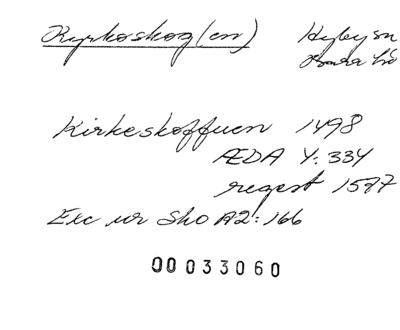 Kyrkoskog(en) Hyby sn
Bara hd
Kirkeskoffuen 1498
ÆDA V: 334
regest 1587
Exc ur Sko A2: 166
00033060